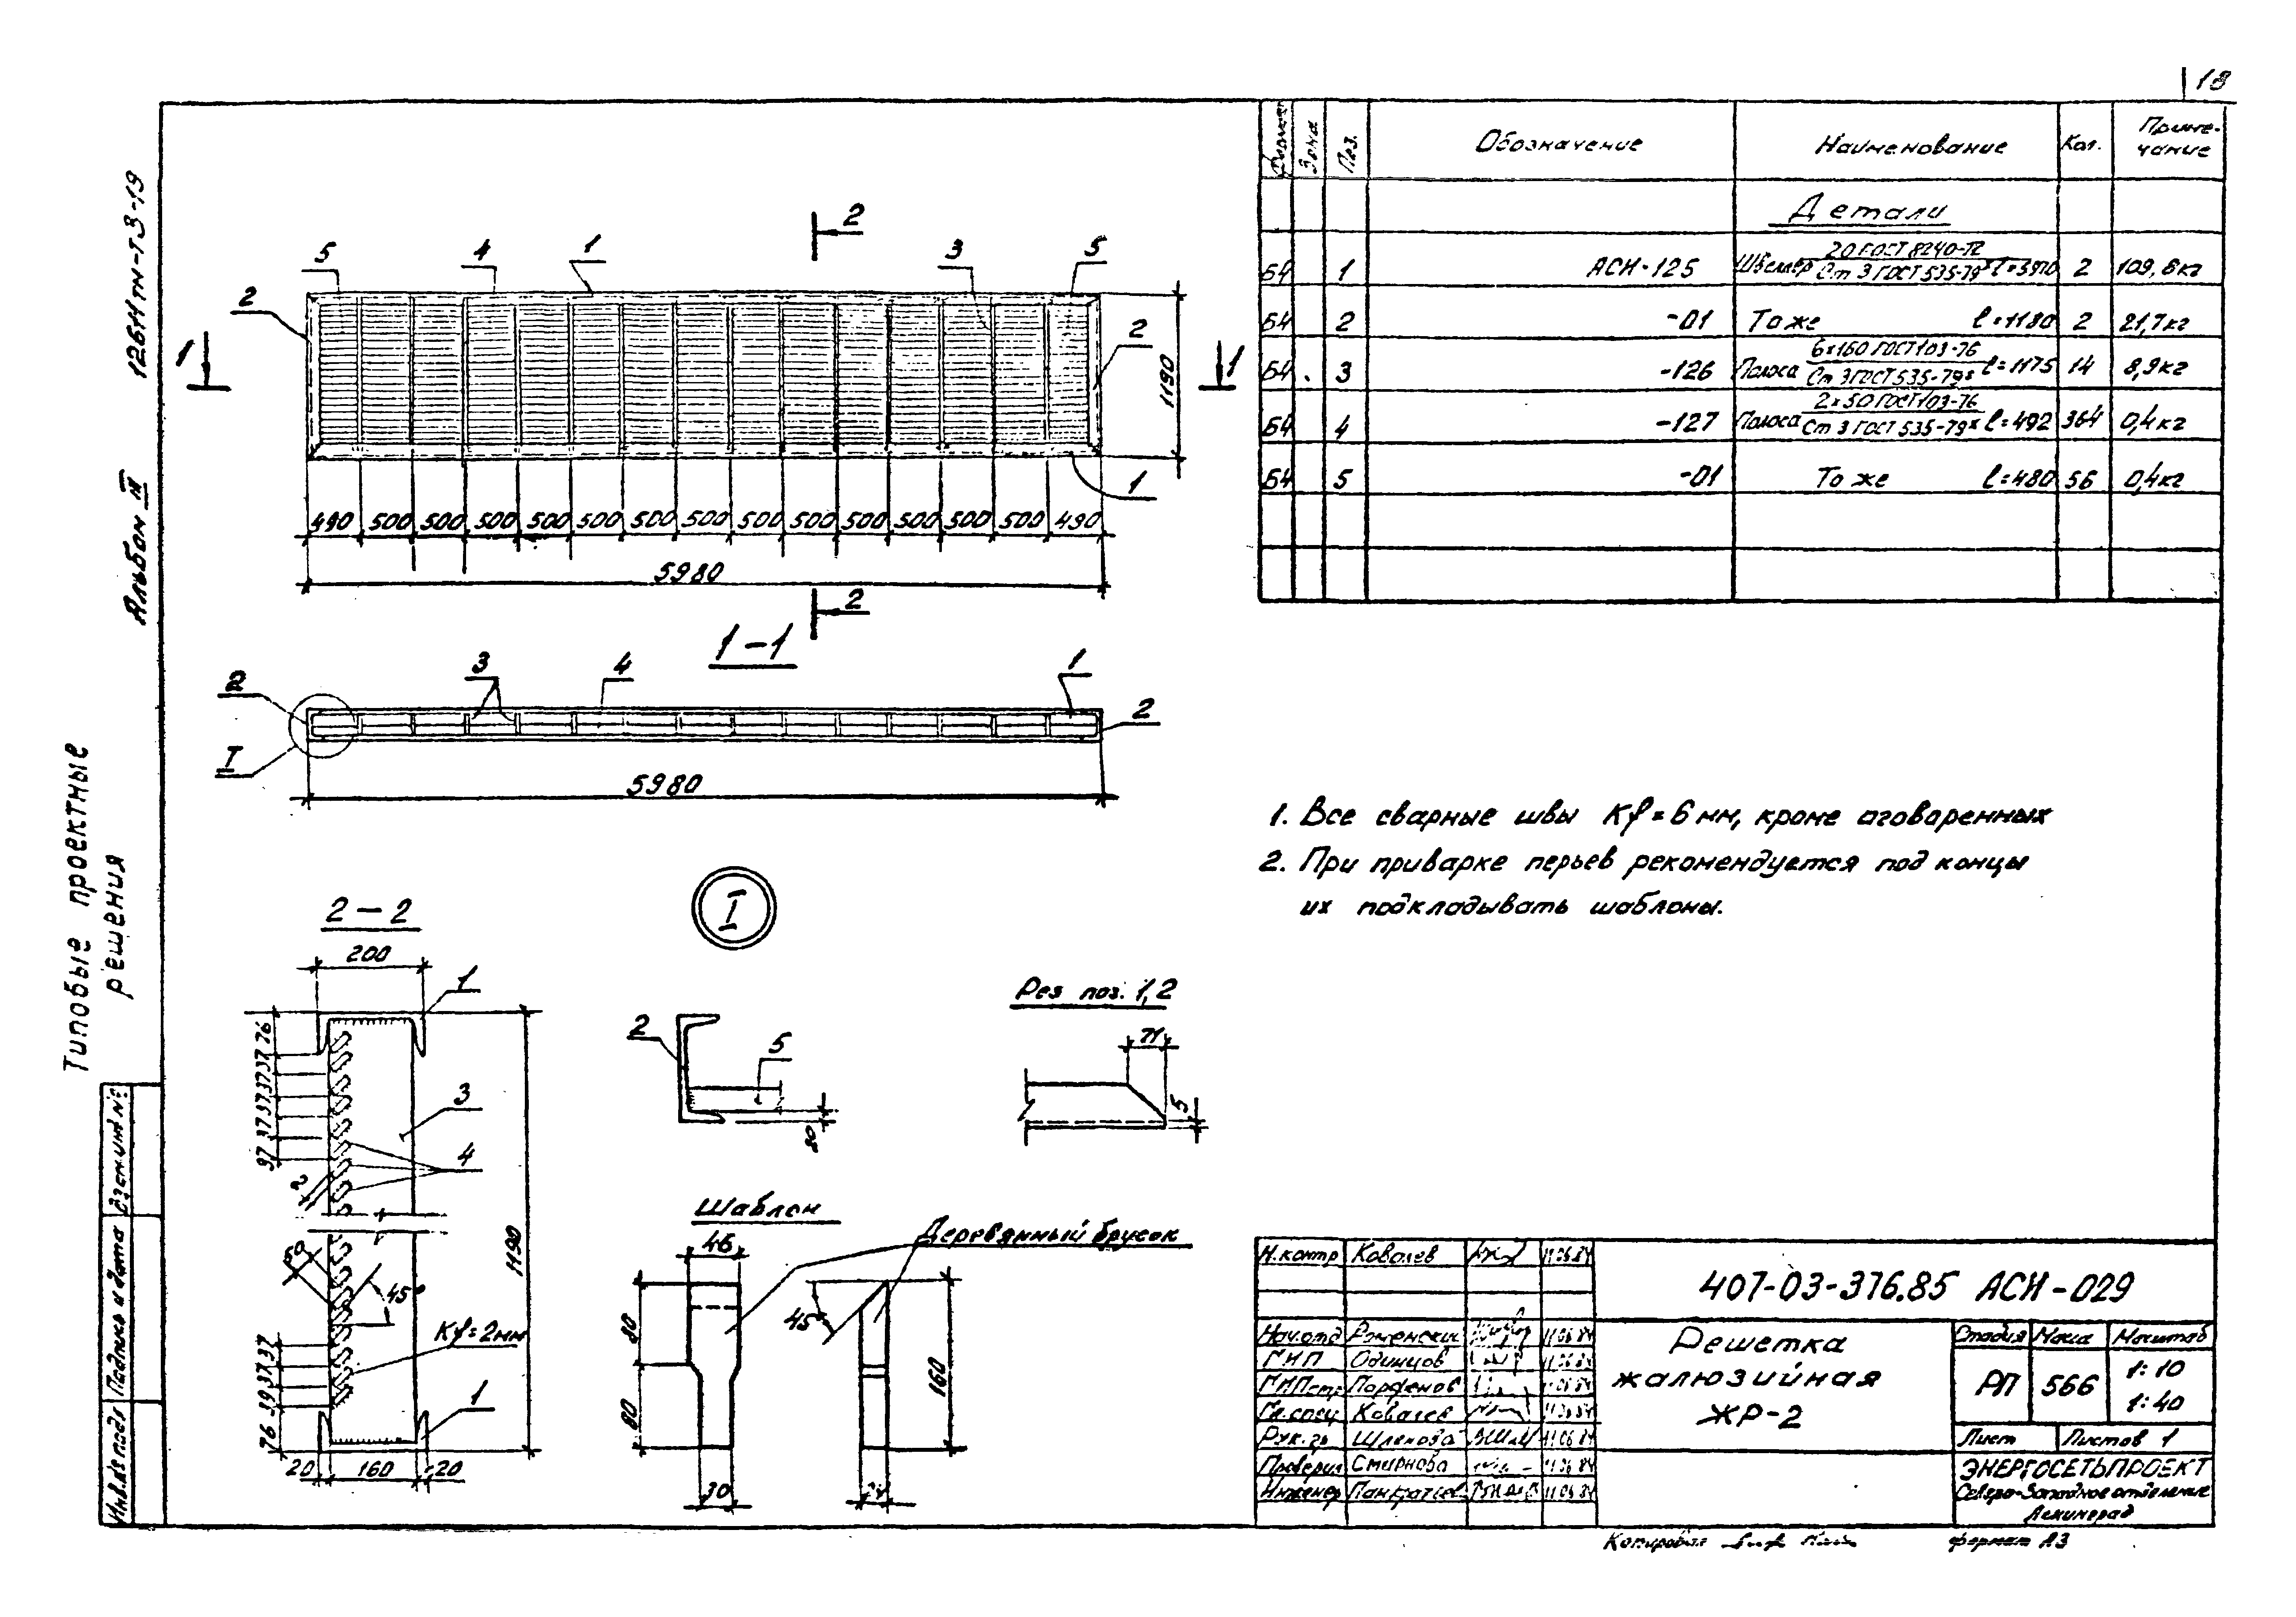 18
126Нтм-Т3-19
Альбом III
Типовые проектные
решения
Взам.инв.№
Подпись и дата
Инв.№ подл
Формат Зона Поз. Обозначение Наименование Кол. Приме-
чание
Детали
БЧ 1 АСИ-125 Швеллер 20 ГОСТ 8240-72 / Ст 3 ГОСТ 535-79* l=5970 2 109,8кг
БЧ 2 -01 То же l=1180 2 21,7кг
БЧ 3 -126 Полоса 6×160 ГОСТ 103-76 / Ст 3 ГОСТ 535-79* l=1175 14 8,9кг
БЧ 4 -127 Полоса 2×50 ГОСТ 103-76 / Ст 3 ГОСТ 535-79* l=492 364 0,4кг
БЧ 5 -01 То же l=480 56 0,4кг
2
5 4 1 3 5
2 2
1 1
1190
1
490 500 500 500 500 500 500 500 500 500 500 500 500 500 490
5980
2
1-1
2 3 4 1 2
I
5980
1. Все сварные швы Kf=6мм, кроме оговоренных
2. При приварке перьев рекомендуется под концы
их подкладывать шаблоны.
2-2
200
1
76
37 37 37 37 37 37
3
4
2
50
45°
1190
Kf=2мм
37 37 39 76
1
20 160 20
I
2 5
20
Рез поз. 1,2
71
5
Шаблон
Деревянный брусок
46
80
80
30
45°
160
Н.контр Ковалев 11.06.84
407-03-376.85 АСИ-029
Нач.отд Роменский 11.06.84
ГИП Одинцов 11.06.84
ГИПстр Парфенов 11.06.84
Гл.спец Ковалев 11.06.84
Рук.гр Шленова 11.06.84
Проверил Смирнова 11.06.84
Инженер Панкратьев 11.06.84
Решетка
жалюзийная
ЖР-2
Стадия Масса Масштаб
РП 566 1:10
1:40
Лист Листов 1
ЭНЕРГОСЕТЬПРОЕКТ
Северо-Западное отделение
Ленинград
Копировал формат А3